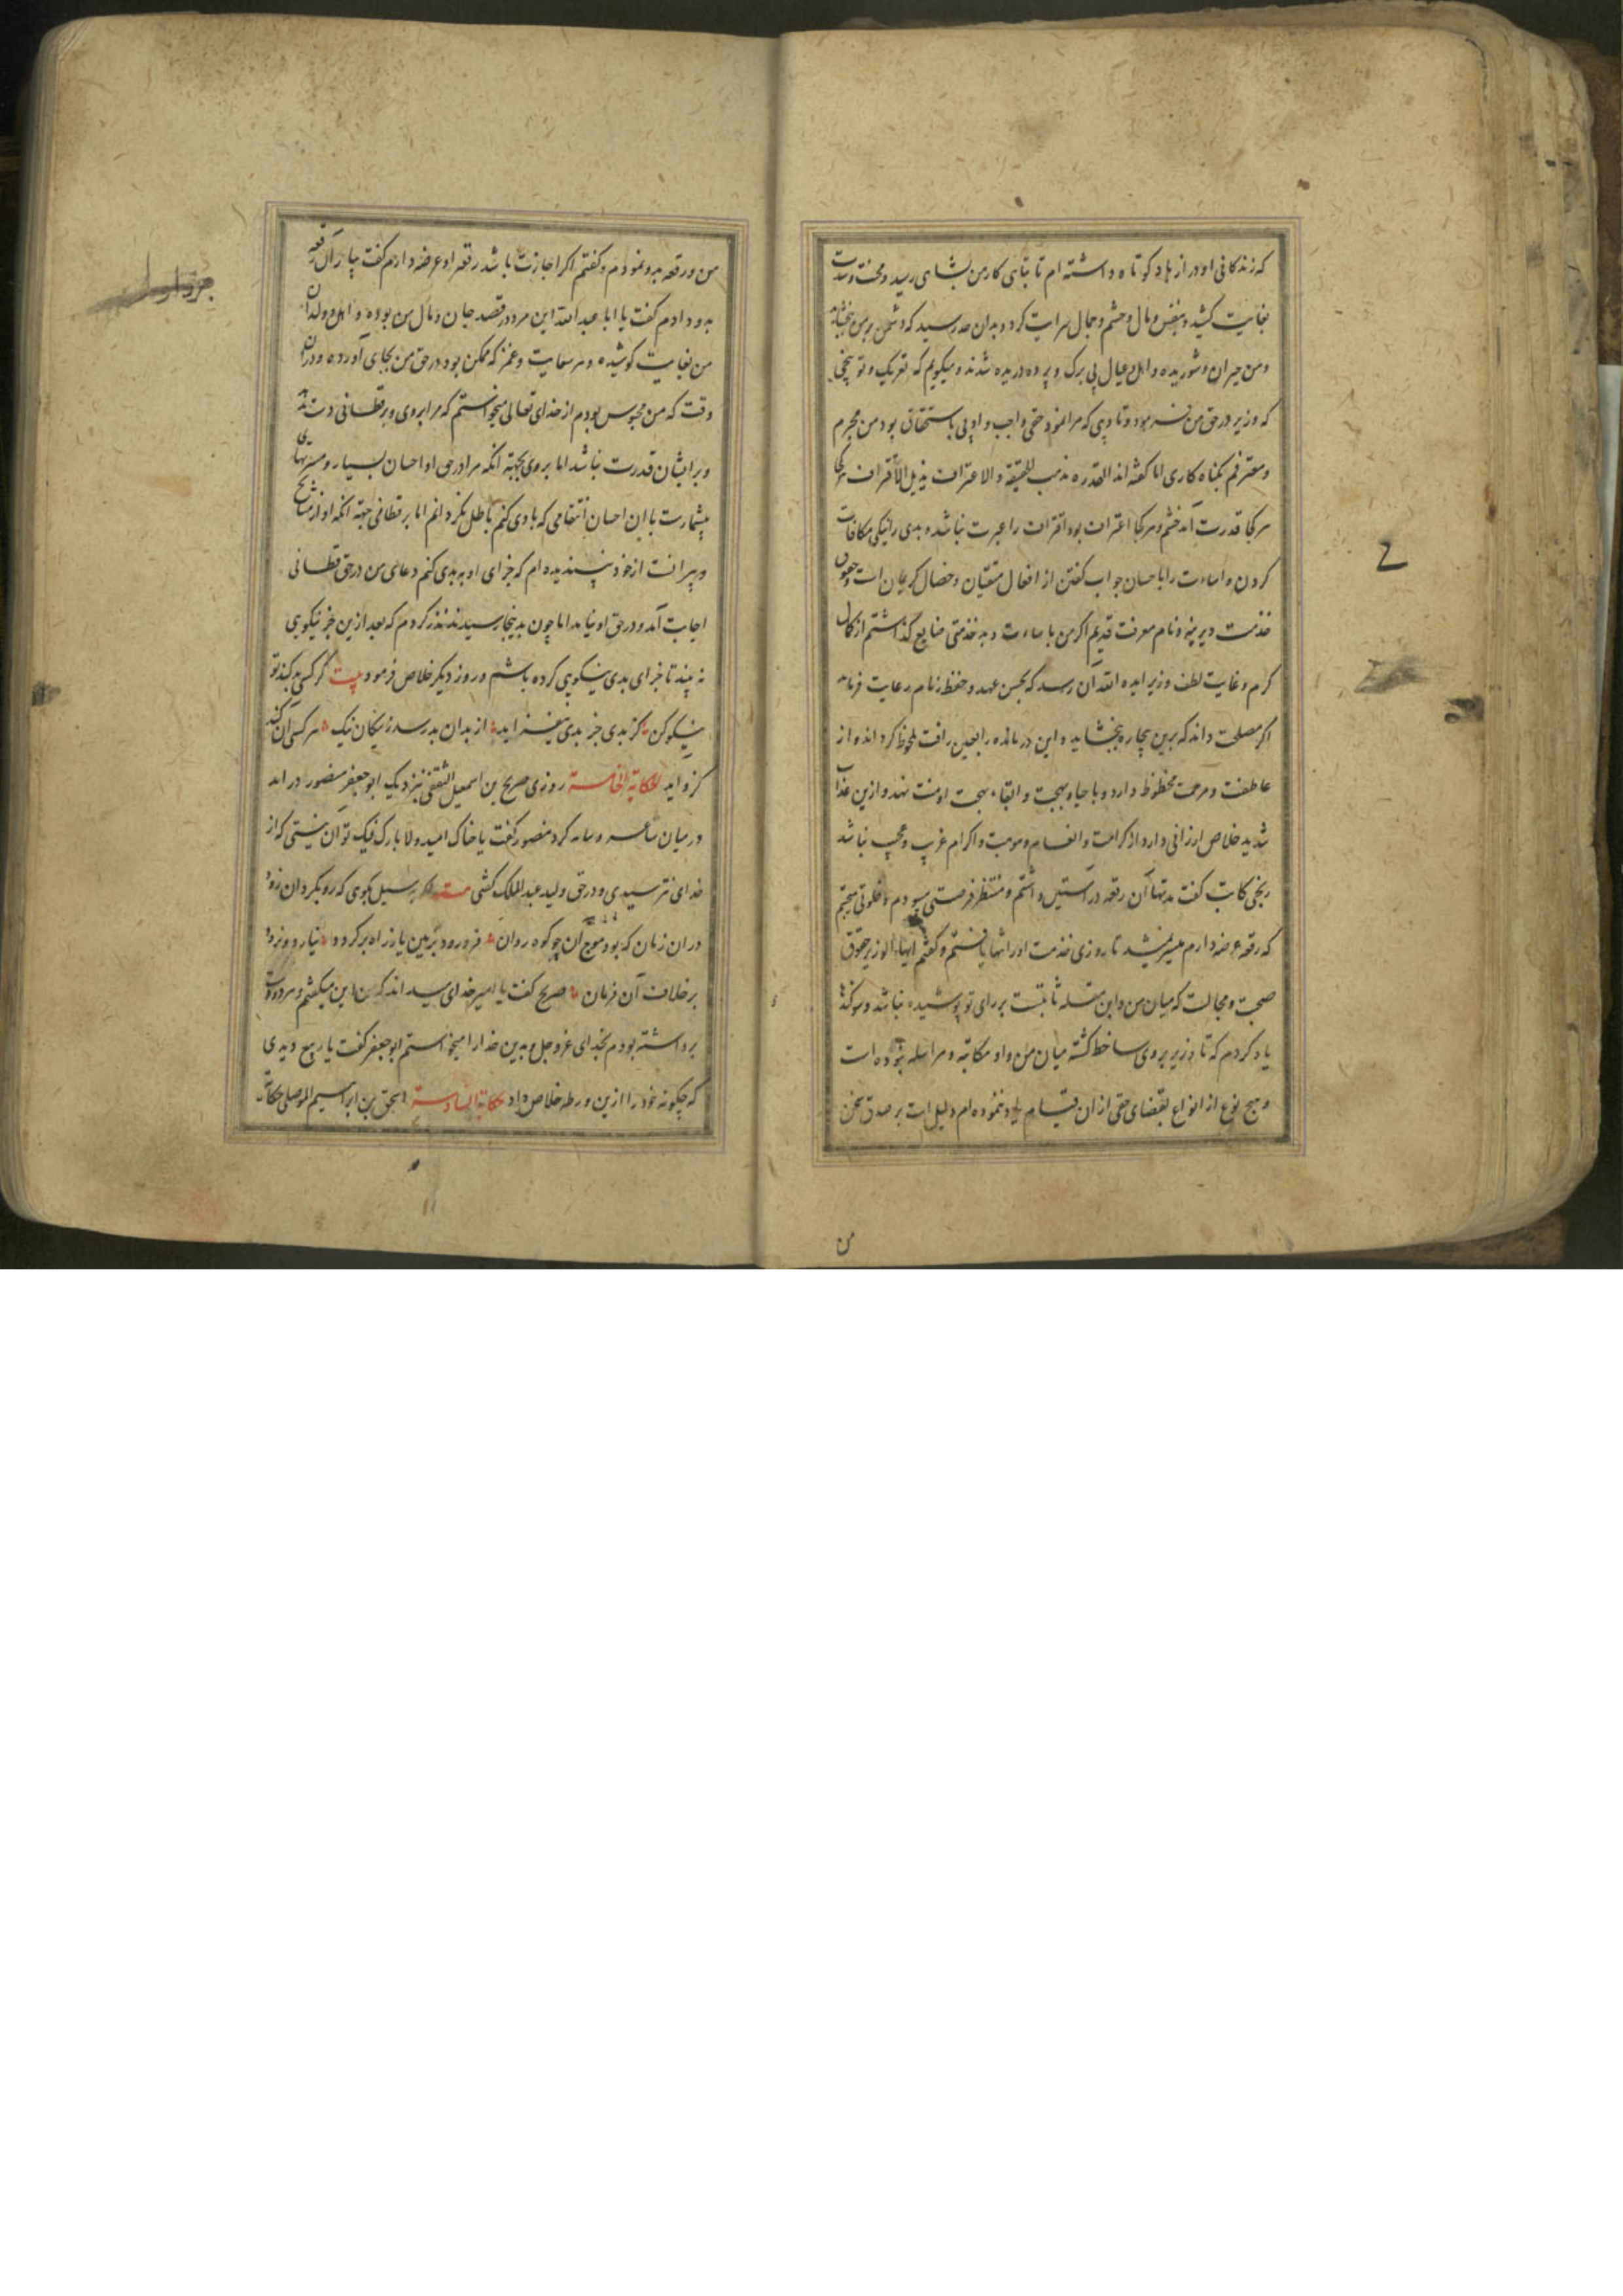 که زندکانی او دراز باد کوتاه داشته ام تا تباهی کار من بشامی رسید و محنت و شدت
بغایت کشید و بنفس و مال و حشم و جمال سرایت کرد و بدان حد رسید که دشمن بر من ببخشاید
و من حیران و شوریده و اهل و عیال بی برک و پرده دریده شدند و میکویم که تعریک و توبیخی
که وزیر در حق من فرمود و تادیبی که مرا نمود حقی واجب و ادبی باستحقاق بود من مجرم
و معترفم بکناه کاری اما کفته اند القدرة تذهب الحفیظة و الاعتراف یزیل الاقتراف هر کجا
هر کجا قدرت آمد خشم و هر کجا اعتراف بود اقتراف را عبرت نباشد و بدی را نیکی مکافات
کردن و اساءت را باحسان جواب کفتن از افعال متقیان و خصال کریمان است و حقوق
خدمت دیرینه و نام معرفت قدیم اکر من باساءت و بد خدمتی ضایع کذاشتم از کمال
کرم و غایت لطف وزیر ایده الله آن رسد که بحسن عهد و حفظ زمام رعایت فرماید
اکر مصلحت داند که برین بیچاره ببخشاید و این درمانده را بعین رافت ملحوظ کرداند و از
عاطفت و مرحمت محظوظ دارد و باحیاء مهجت و ابقاء بهجت او منت نهد و ازین عذاب
شدید خلاص ارزانی دارد از کرامت و انعام و موهبت و اکرام غریب و عجیب نباشد
ریحی کاتب کفت مدتها آن رقعه در آستین داشتم و منتظر فرصتی میبودم و خلوتی میجستم
که رقعه عرضه دارم میسر نمیشد تا روزی خدمت او را تنها یافتم و کفتم ایها الوزیر حقوق
صحبت و مجالست که میان من و ابن مقله ثابتست بر رای تو پوشیده نباشد و سوکندها
یاد کردم که تا وزیر بر وی ساخط کشته میان من و او مکاتبه و مراسله نبوده است
و هیچ نوع از انواع بقضای حقی از آن قیام ننموده ام و دلیل است بر صدق سخن
من
من و رقعه بدو نمودم و کفتم اکر اجازت باشد رقعه او عرضه دارم کفت بیار آن رقعه
بدو دادم کفت یا ابا عبد الله این مرد در قصد جان و مال من بوده و اهل و ولدان
من بغایت کوشیده و هر سعایت و غمز که ممکن بود در حق من بجای آورده و در آن
وقت که من محبوس بودم از خدای تعالی میخواستم که مرا بر وی و بر قطانی دست ندهد
و بر ایشان قدرت نباشد اما بر وی بجهة آنکه مرا در حق او احسان بسیار و مبرتهای
بیشمارست با این احسان انتقامی که با وی کنم باطل نکردانم اما بر قطانی جهة آنکه او از مشایخ
و پیرانست از خود نپسندیده ام که جزای او ببدی کنم دعای من در حق قطانی
اجابت آمد و در حق او نیامد اما چون بدینجا رسید نذر کردم که بعد ازین جز نیکویی
نه بیند تا جزای بدی بنیکویی کرده باشم و روز دیکر خلاص فرمود بیت کر کسی بد کند تو
نیکو کن کز بدی جز بدی نیفزاید از بدان بد رسد ز نیکان نیک هر کس آن کند
کزو اید الحکایة الخامسة روزی صریح بن اسمعیل الثقفی نزدیک ابو جعفر منصور درآمد
در میان شاعر و سایه کرد منصور کفت یا خاک امیه و لا بارک فیک تو آن نیستی که از
خدای نترسیدی و در حق ولید عبد الملک کفتی اکر سیل بکوی که ره بکردان زود
در آن زمان که بود موج آن چو کوه روان فرو رود بزمین یا ز راه برکردد نیارد و نرود
بر خلاف آن فرمان صریح کفت یا امیر خدای میداند که من این میکفتم و هر دو دست
برداشته بودم بخدای عز و جل و بدین خدا را میخواستم ابو جعفر کفت یا ربیع دیدی
که چکونه خود را ازین ورطه خلاص داد حکایة السادسة اسحق بن ابراهیم الموصلی حکایت